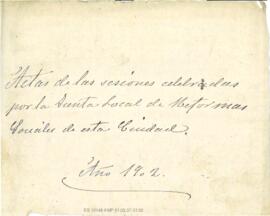 Actas de las sesiones celebradas
por la Junta Local de Reformas
Sociales de esta Ciudad.
Año 1902.